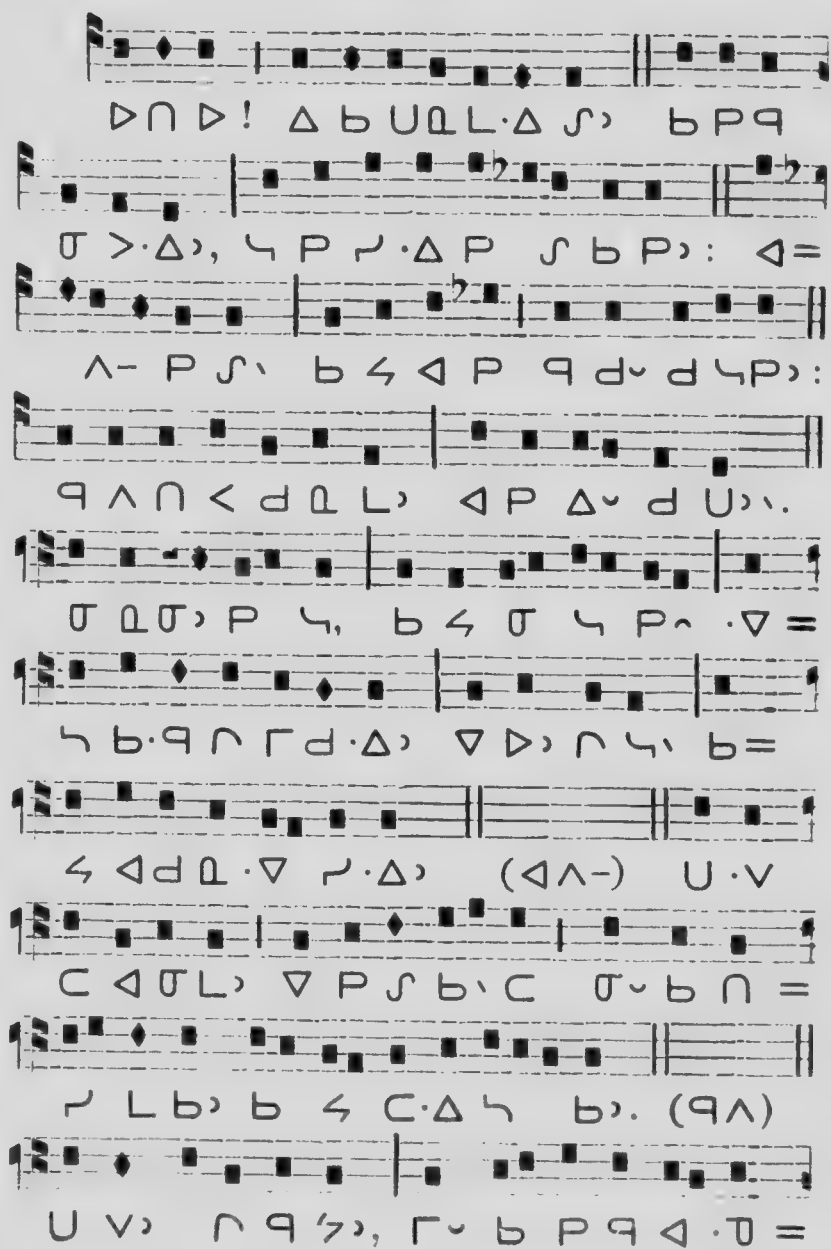 ᐅᑎ ᐅ! ᐃ ᑲ ᑌᓇᒪ·ᐃ ᔑᐣ ᑲ ᑭᑫ
ᓂ ᐳ·ᐃᐣ, ᓴ ᑭ ᓯ·ᐃ ᑭ ᔑ ᑲ ᑭᐣ: ᐊ=
ᐱᐨ ᑭ ᔑᐠ ᑲ ᔭ ᐊ ᑭ ᑫ ᑯᐢ ᑯ ᓴᑭᐣ:
ᑫ ᐱ ᑎ ᐸ ᑯ ᓇ ᒪᐣ ᐊ ᑭ ᐃᐢ ᑯ ᑌᐣᐠ.
ᓂ ᓇᓂᐣ ᑭ ᓴ, ᑲ ᔭ ᓂ ᓴ ᑭᐢ ·ᐁ =
ᓭ ᑲ·ᑫ ᒋ ᒥ ᑯ·ᐃᐣ ᐁ ᐅᐣ ᒋ ᓴᐠ ᑲ=
ᔭ ᐊᑯ ᓇ ·ᐁ ᓯ·ᐃᐣ (ᐊᐱᐨ) ᑌ ·ᐯ
ᑕ ᐊ ᓂᒪᐣ ᐁ ᑭ ᔑ ᑲᐠ ᑕ ᓂᐢ ᑲ ᑎ =
ᓯ ᒪ ᑲᐣ ᑲ ᔭ ᑕ·ᐃ ᓭ ᑲᐣ. (ᑫᐱ)
ᑌ ᐯᐣ ᒋ ᑫ ᔭᐣ, ᒥᐢ ᑲ ᑭ ᑫ ᐊ ·ᓀ =